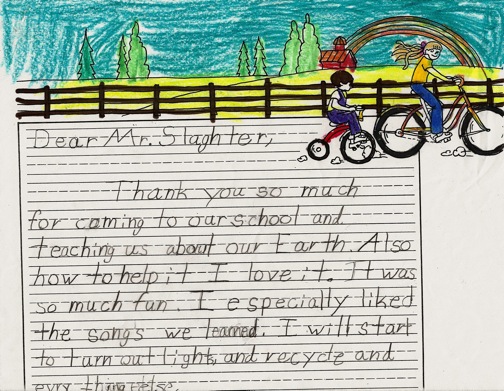 Dear Mr. Slaghter,
Thank you so much
for coming to our school and
teaching us about our Earth. Also
how to help it I love it. It was
so much fun. I especially liked
the songs we learned. I will start
to turn out lights, and recycle and
evry thing else.